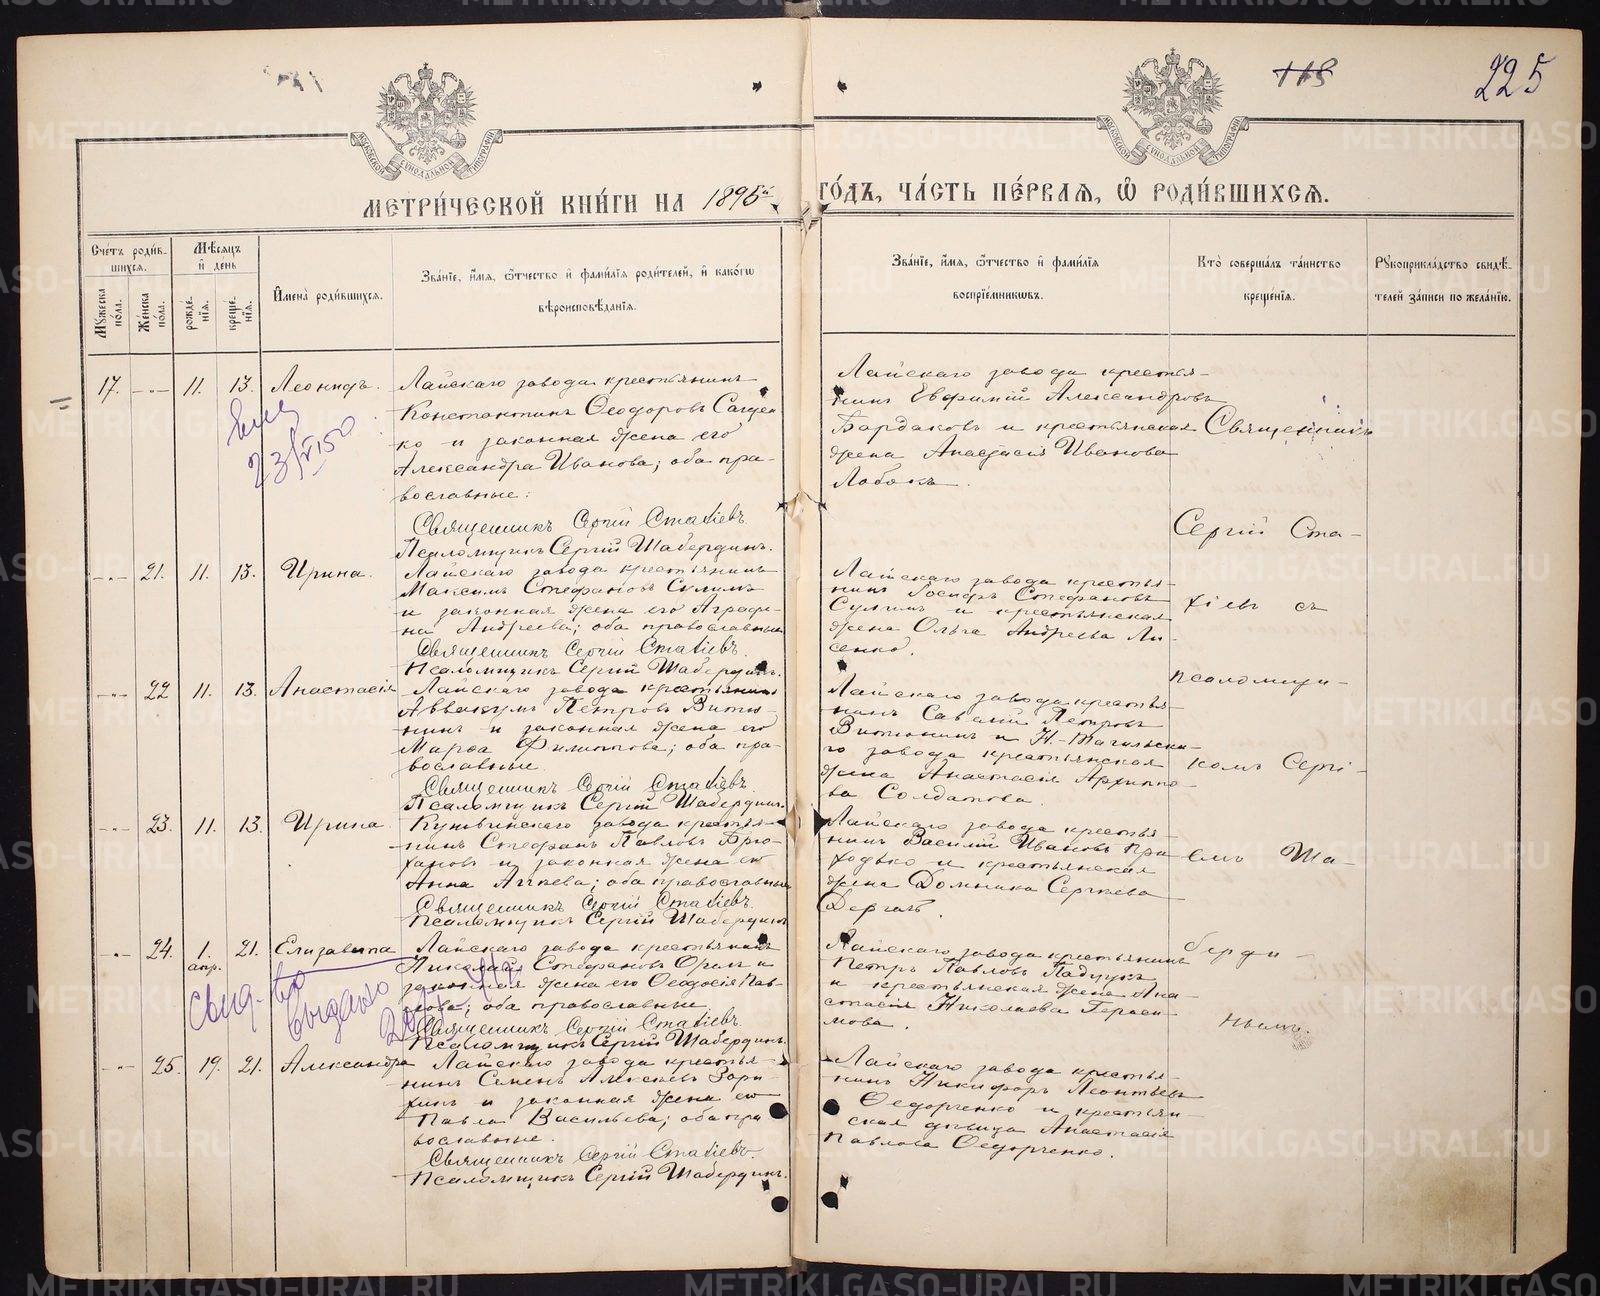 225
МЕТРИ́ЧЕСКОЙ КНИ́ГИ НА 1895й ГО́ДЪ, ЧА́СТЬ ПЕ́РВАЯ, Ѡ РОДИ́ВШИХСЯ.
Сче́тъ роди́в-
шихся.
Мѣ́сяцъ
и҆ день
Мꙋ́жеска
по́ла.
Же́нска
по́ла.
рожде́-
нїя.
креще́-
нїя.
И҆мена̀ роди́вшихся.
Зва́нїе, и҆́мя, ѻ҆́тчество и҆ фами́лїя роди́телей, и҆ како́гѡ
вѣроисповѣ́данїя.
Зва́нїе, и҆́мя, ѻ҆́тчество и҆ фами́лїя
воспрїе́мникѡвъ.
Кто̀ соверша́лъ та́инство
креще́нїя.
Рꙋкоприкла́дство свидѣ́-
телей за́писи по жела́нїю.
17. 11. 13. Леонидъ.
Лайскаго завода крестьянинъ
Константинъ Ѳеодоровъ
ко и законная жена его
Александра Иванова; оба пра-
вославные.
Священникъ Сергій Статіевъ.
Псаломщикъ Сергій Шабердинъ.
Лайскаго завода крестья-
нинъ Евфимій Александровъ
Бардаковъ и крестьянская
жена Анастасія Иванова
Священникъ
Сергій Ста-
тіевъ съ
псаломщи-
комъ Сергі-
емъ Ша-
берди-
нымъ.
21. 11. 13. Ирина.
Лайскаго завода крестьянинъ
Максимъ Стефановъ Сулимъ
и законная жена его Аграфе-
на Андреева; оба православные
Священникъ Сергій Статіевъ.
Псаломщикъ Сергій Шабердинъ.
Лайскаго завода крестья-
нинъ Іосифъ Стефановъ
Сулимъ и крестьянская
жена Ольга Андреева Ли-
сенко.
22 11. 13. Анастасія
Лайскаго завода крестьянинъ
Аввакумъ Петровъ Витю-
нинъ и законная жена его
Марѳа Филиппова; оба пра-
вославные.
Священникъ Сергій Статіевъ.
Псаломщикъ Сергій Шабердинъ.
Лайскаго завода крестья-
нинъ Савватій Петровъ
Витюнинъ и Н.-Тагильска-
го завода крестьянская
жена Анастасія Архипо-
ва Солдатова.
23. 11. 13. Ирина
Кушвинскаго завода крестья-
нинъ Стефанъ Павловъ Брю-
хановъ и законная жена его
Анна; оба православные
Священникъ Сергій Статіевъ.
Псаломщикъ Сергій Шабердинъ
Лайскаго завода крестья-
нинъ Василій Ивановъ При-
ходько и крестьянская
жена Домника Сергѣева
24. 1. апр. 21. Елизавета
Лайскаго завода крестьянинъ
Николай Стефановъ Орелъ и
законная жена его Ѳеодосія Пав-
лова; оба православные.
Священникъ Сергій Статіевъ.
Псаломщикъ Сергій Шабердинъ.
Лайскаго завода крестьянинъ
Петръ Павловъ Падучъ
и крестьянская жена Ана-
стасія Николаева Гераси-
мова.
Свид-во
выдано
25. 19. 21. Александра
Лайскаго завода крестья-
нинъ Семенъ Алексѣевъ
и законная жена его
Павла Васильева; оба пра
вославные.
Священникъ Сергій Статіевъ.
Псаломщикъ Сергій Шабердинъ.
Лайскаго завода крестья-
нинъ Никифоръ Леонтьевъ
Ѳедорченко и крестьян-
ская дѣвица Анастасія
Павлова Ѳедорченко.